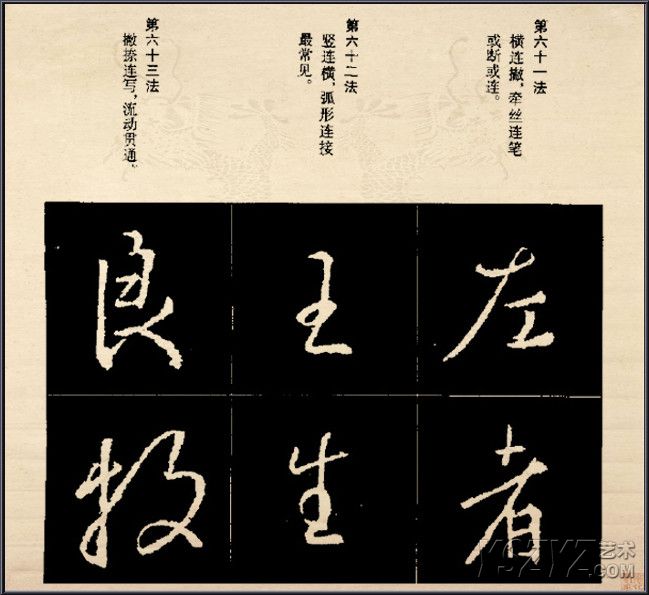 第六十一法
横连撇，牵丝连笔
或断或连。
第六十二法
竖连横，弧形连接
最常见。
第六十三法
撇捺连写，流动贯通。
左
者
王
生
良
牧
YSZYZ艺术
.COM